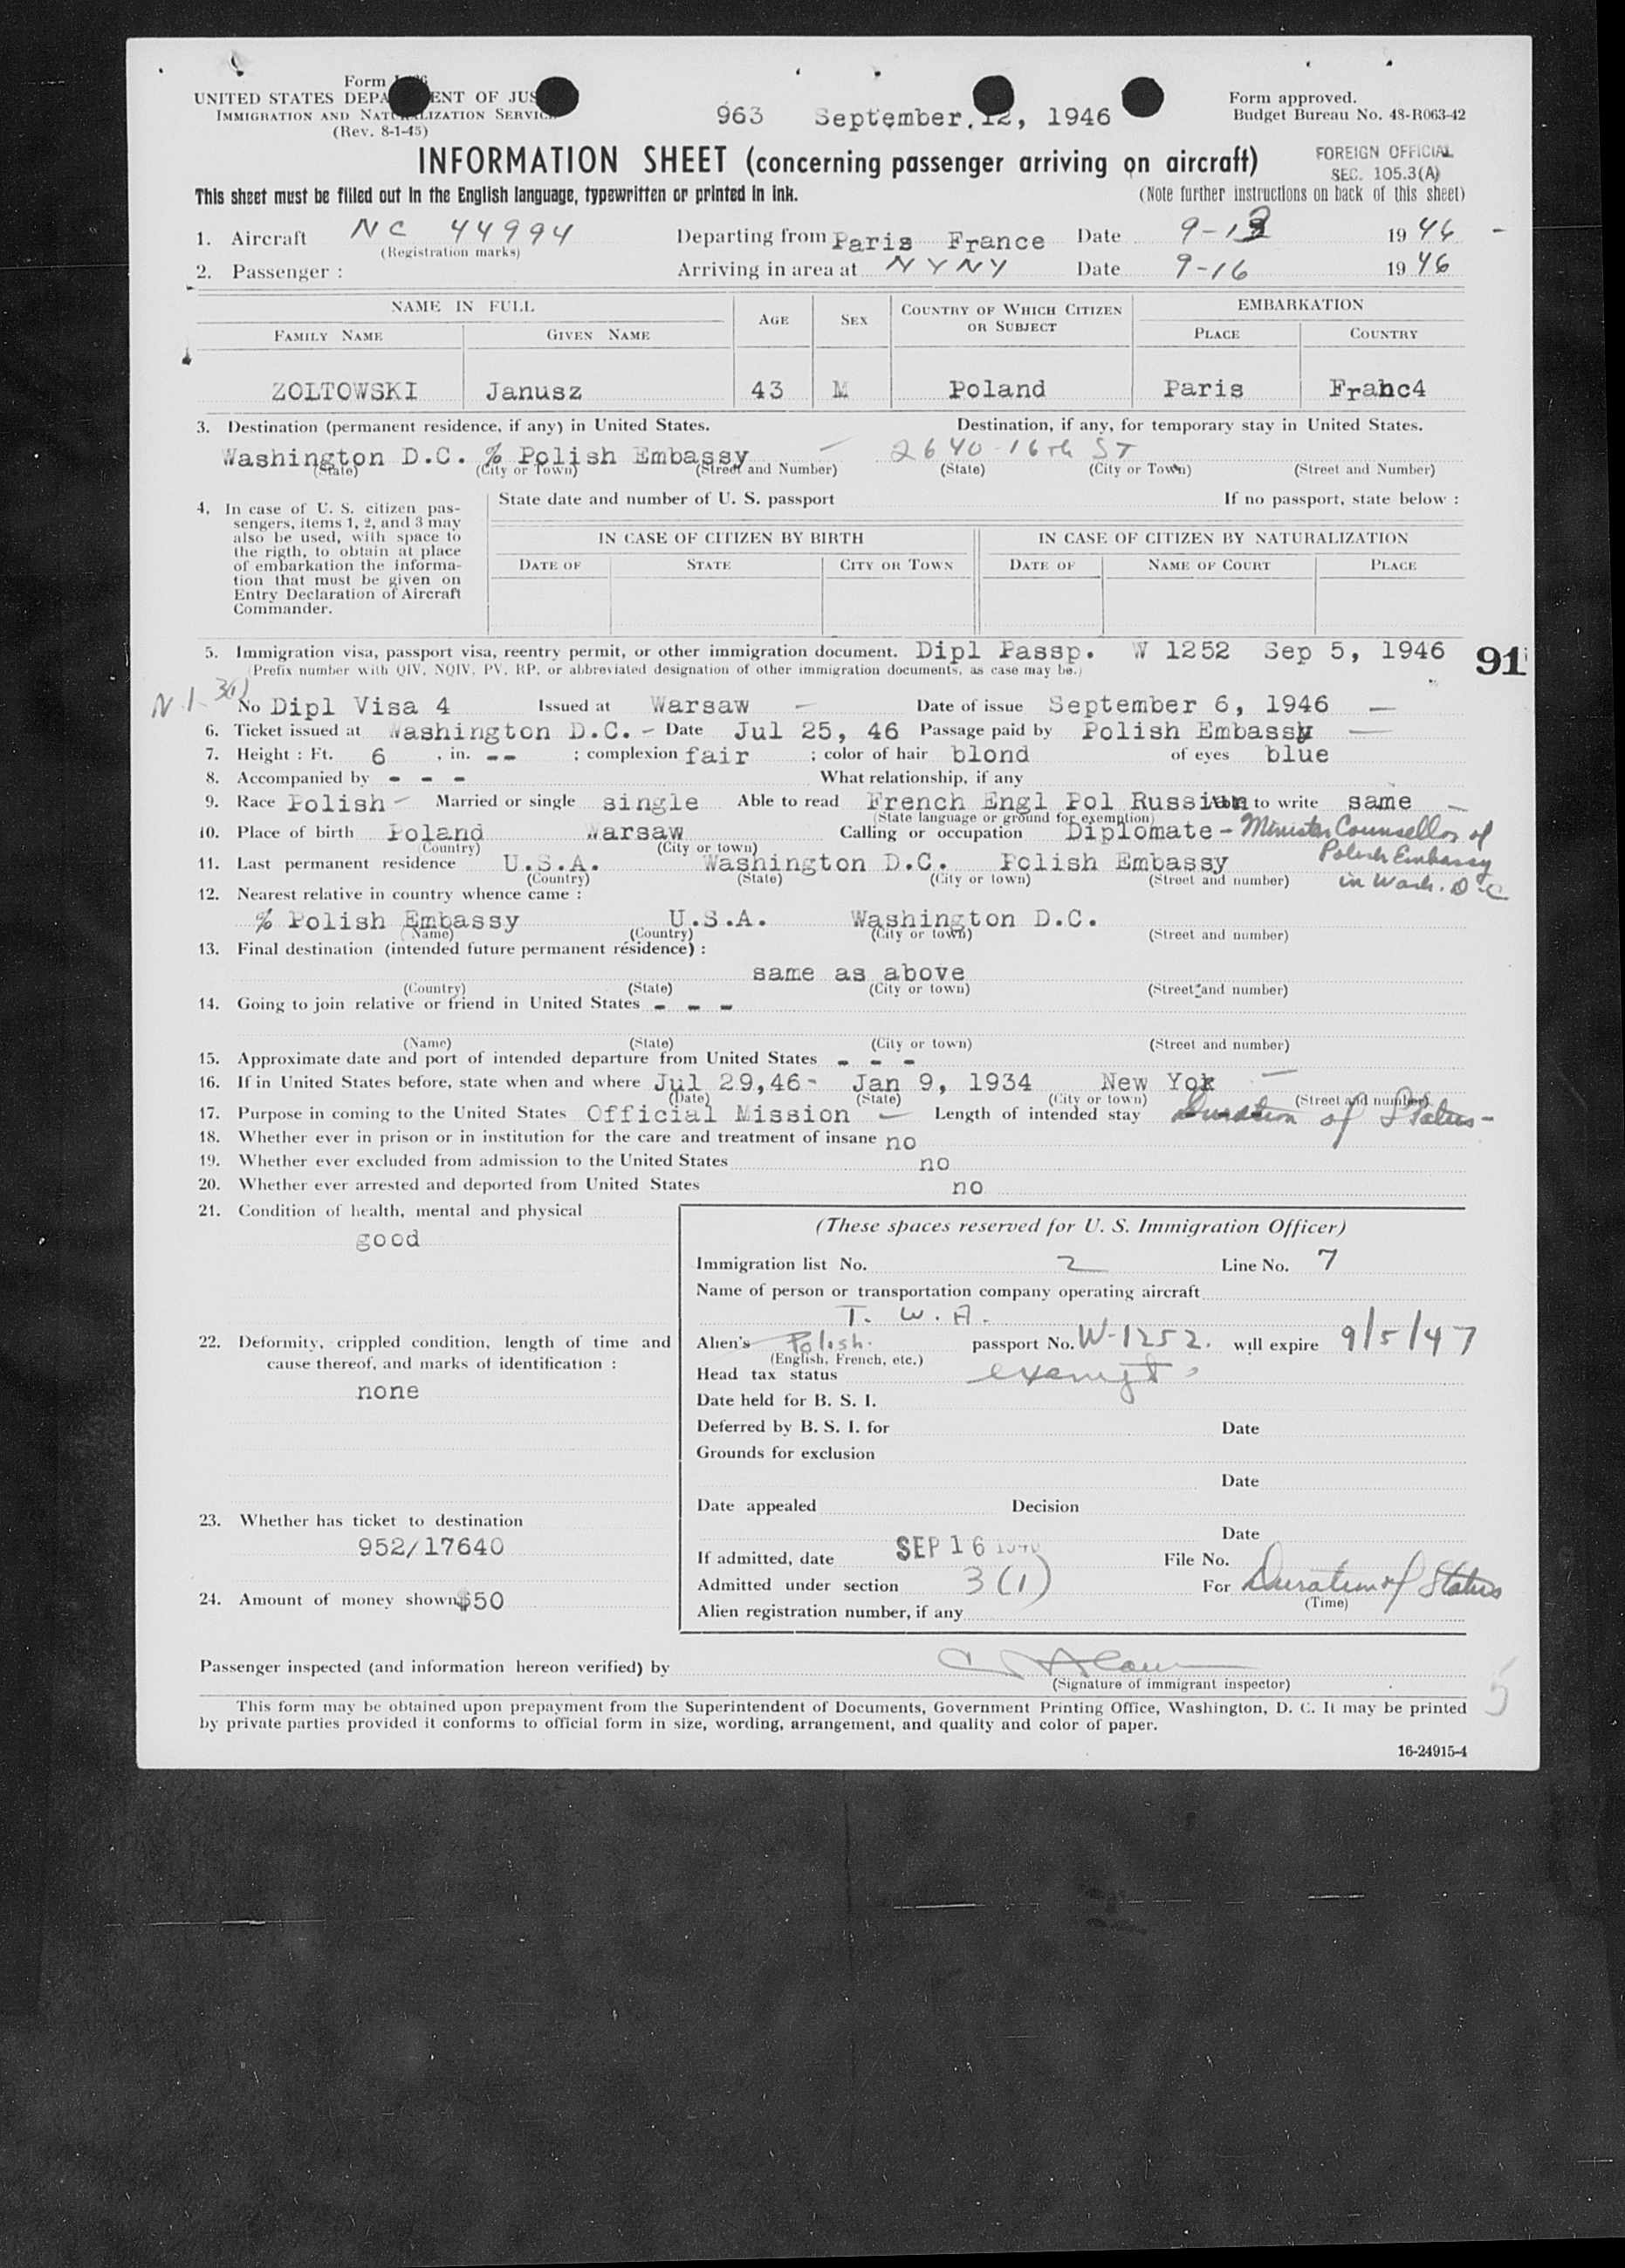 Form
UNITED STATES DEPA ENT OF JUS
IMMIGRATION AND NATURALIZATION SERVICE
(Rev. 8-1-45)
963 September 12, 1946
Form approved.
Budget Bureau No. 48-R063-42
INFORMATION SHEET (concerning passenger arriving on aircraft)
FOREIGN OFFICIAL
SEC. 105.3(A)
This sheet must be filled out in the English language, typewritten or printed in ink. (Note further instructions on back of this sheet)
1. Aircraft NC 44994 Departing from Paris France Date 9-13 1946 -
(Registration marks)
2. Passenger : Arriving in area at NYNY Date 9-16 1946
NAME IN FULL AGE SEX COUNTRY OF WHICH CITIZEN OR SUBJECT EMBARKATION
FAMILY NAME GIVEN NAME PLACE COUNTRY
ZOLTOWSKI Janusz 43 M Poland Paris Franc4
3. Destination (permanent residence, if any) in United States. Destination, if any, for temporary stay in United States.
Washington D.C. % Polish Embassy - 2640-16th ST
(State) (City or Town) (Street and Number) (State) (City or Town) (Street and Number)
4. In case of U. S. citizen pas-
sengers, items 1, 2, and 3 may
also be used, with space to
the rigth, to obtain at place
of embarkation the informa-
tion that must be given on
Entry Declaration of Aircraft
Commander.
State date and number of U. S. passport If no passport, state below :
IN CASE OF CITIZEN BY BIRTH IN CASE OF CITIZEN BY NATURALIZATION
DATE OF STATE CITY OR TOWN DATE OF NAME OF COURT PLACE
5. Immigration visa, passport visa, reentry permit, or other immigration document. Dipl Passp. W 1252 Sep 5, 1946 91
(Prefix number with QIV, NQIV, PV, RP, or abbreviated designation of other immigration documents, as case may be.)
No Dipl Visa 4 Issued at Warsaw - Date of issue September 6, 1946 -
6. Ticket issued at Washington D.C. - Date Jul 25, 46 Passage paid by Polish Embassy -
7. Height : Ft. 6 , in. -- ; complexion fair ; color of hair blond of eyes blue
8. Accompanied by - - - What relationship, if any
9. Race Polish - Married or single single Able to read French Engl Pol Russian Able to write same -
(State language or ground for exemption)
10. Place of birth Poland Warsaw Calling or occupation Diplomate - Minister Counsellor of
(Country) (City or town) Polish Embassy
11. Last permanent residence U.S.A. Washington D.C. Polish Embassy
(Country) (State) (City or town) (Street and number) in Wash. D.C
12. Nearest relative in country whence came :
% Polish Embassy U.S.A. Washington D.C.
(Name) (Country) (City or town) (Street and number)
13. Final destination (intended future permanent résidence) :
same as above
(Country) (State) (City or town) (Street and number)
14. Going to join relative or friend in United States - - -
(Name) (State) (City or town) (Street and number)
15. Approximate date and port of intended departure from United States - - -
16. If in United States before, state when and where Jul 29,46- Jan 9, 1934 New Yok -
(Date) (State) (City or town) (Street and number)
17. Purpose in coming to the United States Official Mission - Length of intended stay Duration of Status -
18. Whether ever in prison or in institution for the care and treatment of insane no
19. Whether ever excluded from admission to the United States no
20. Whether ever arrested and deported from United States no
21. Condition of health, mental and physical
good
22. Deformity, crippled condition, length of time and
cause thereof, and marks of identification :
none
23. Whether has ticket to destination
952/17640
24. Amount of money shown $50
(These spaces reserved for U. S. Immigration Officer)
Immigration list No. 2 Line No. 7
Name of person or transportation company operating aircraft
T. W. A.
Alien's Polish. passport No. W-1252. will expire 9/5/47
(English, French, etc.)
Head tax status exempt
Date held for B. S. I.
Deferred by B. S. I. for Date
Grounds for exclusion
Date
Date appealed Decision
Date
If admitted, date SEP 16 1946 File No.
Admitted under section 3(1) For Duration of Status
(Time)
Alien registration number, if any
Passenger inspected (and information hereon verified) by
(Signature of immigrant inspector)
This form may be obtained upon prepayment from the Superintendent of Documents, Government Printing Office, Washington, D. C. It may be printed
by private parties provided it conforms to official form in size, wording, arrangement, and quality and color of paper.
5
16-24915-4